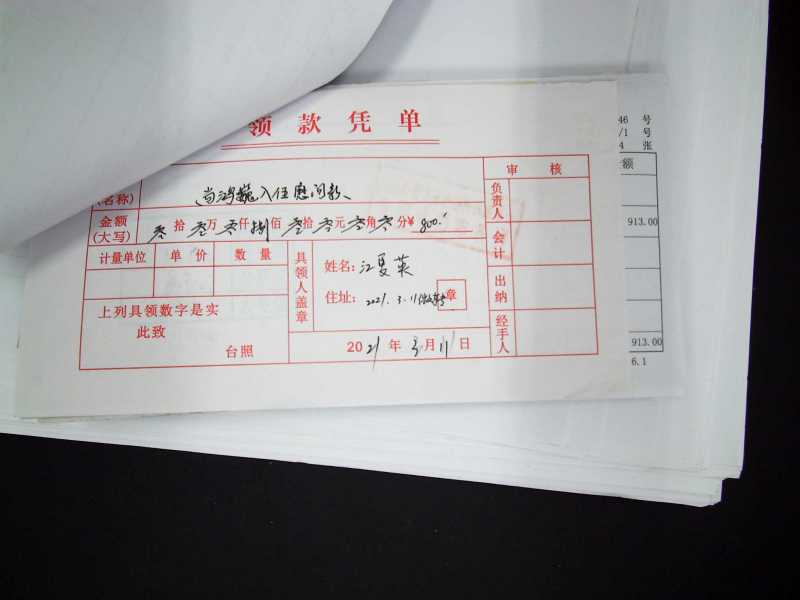 领款凭单
46 号
/1 号
4 张
(名称) 尚鸿巍入伍慰问款
审核
额
金额(大写) 零拾零万零仟捌佰零拾零元零角零分¥ 800.-
负责人
913.00
计量单位 单价 数量
具领人盖章
姓名: 江夏英
会计
住址: 2021.3.11 章
出纳
上列具领数字是实
此致
台照
2021年3月11日
经手人
913.00
6.1